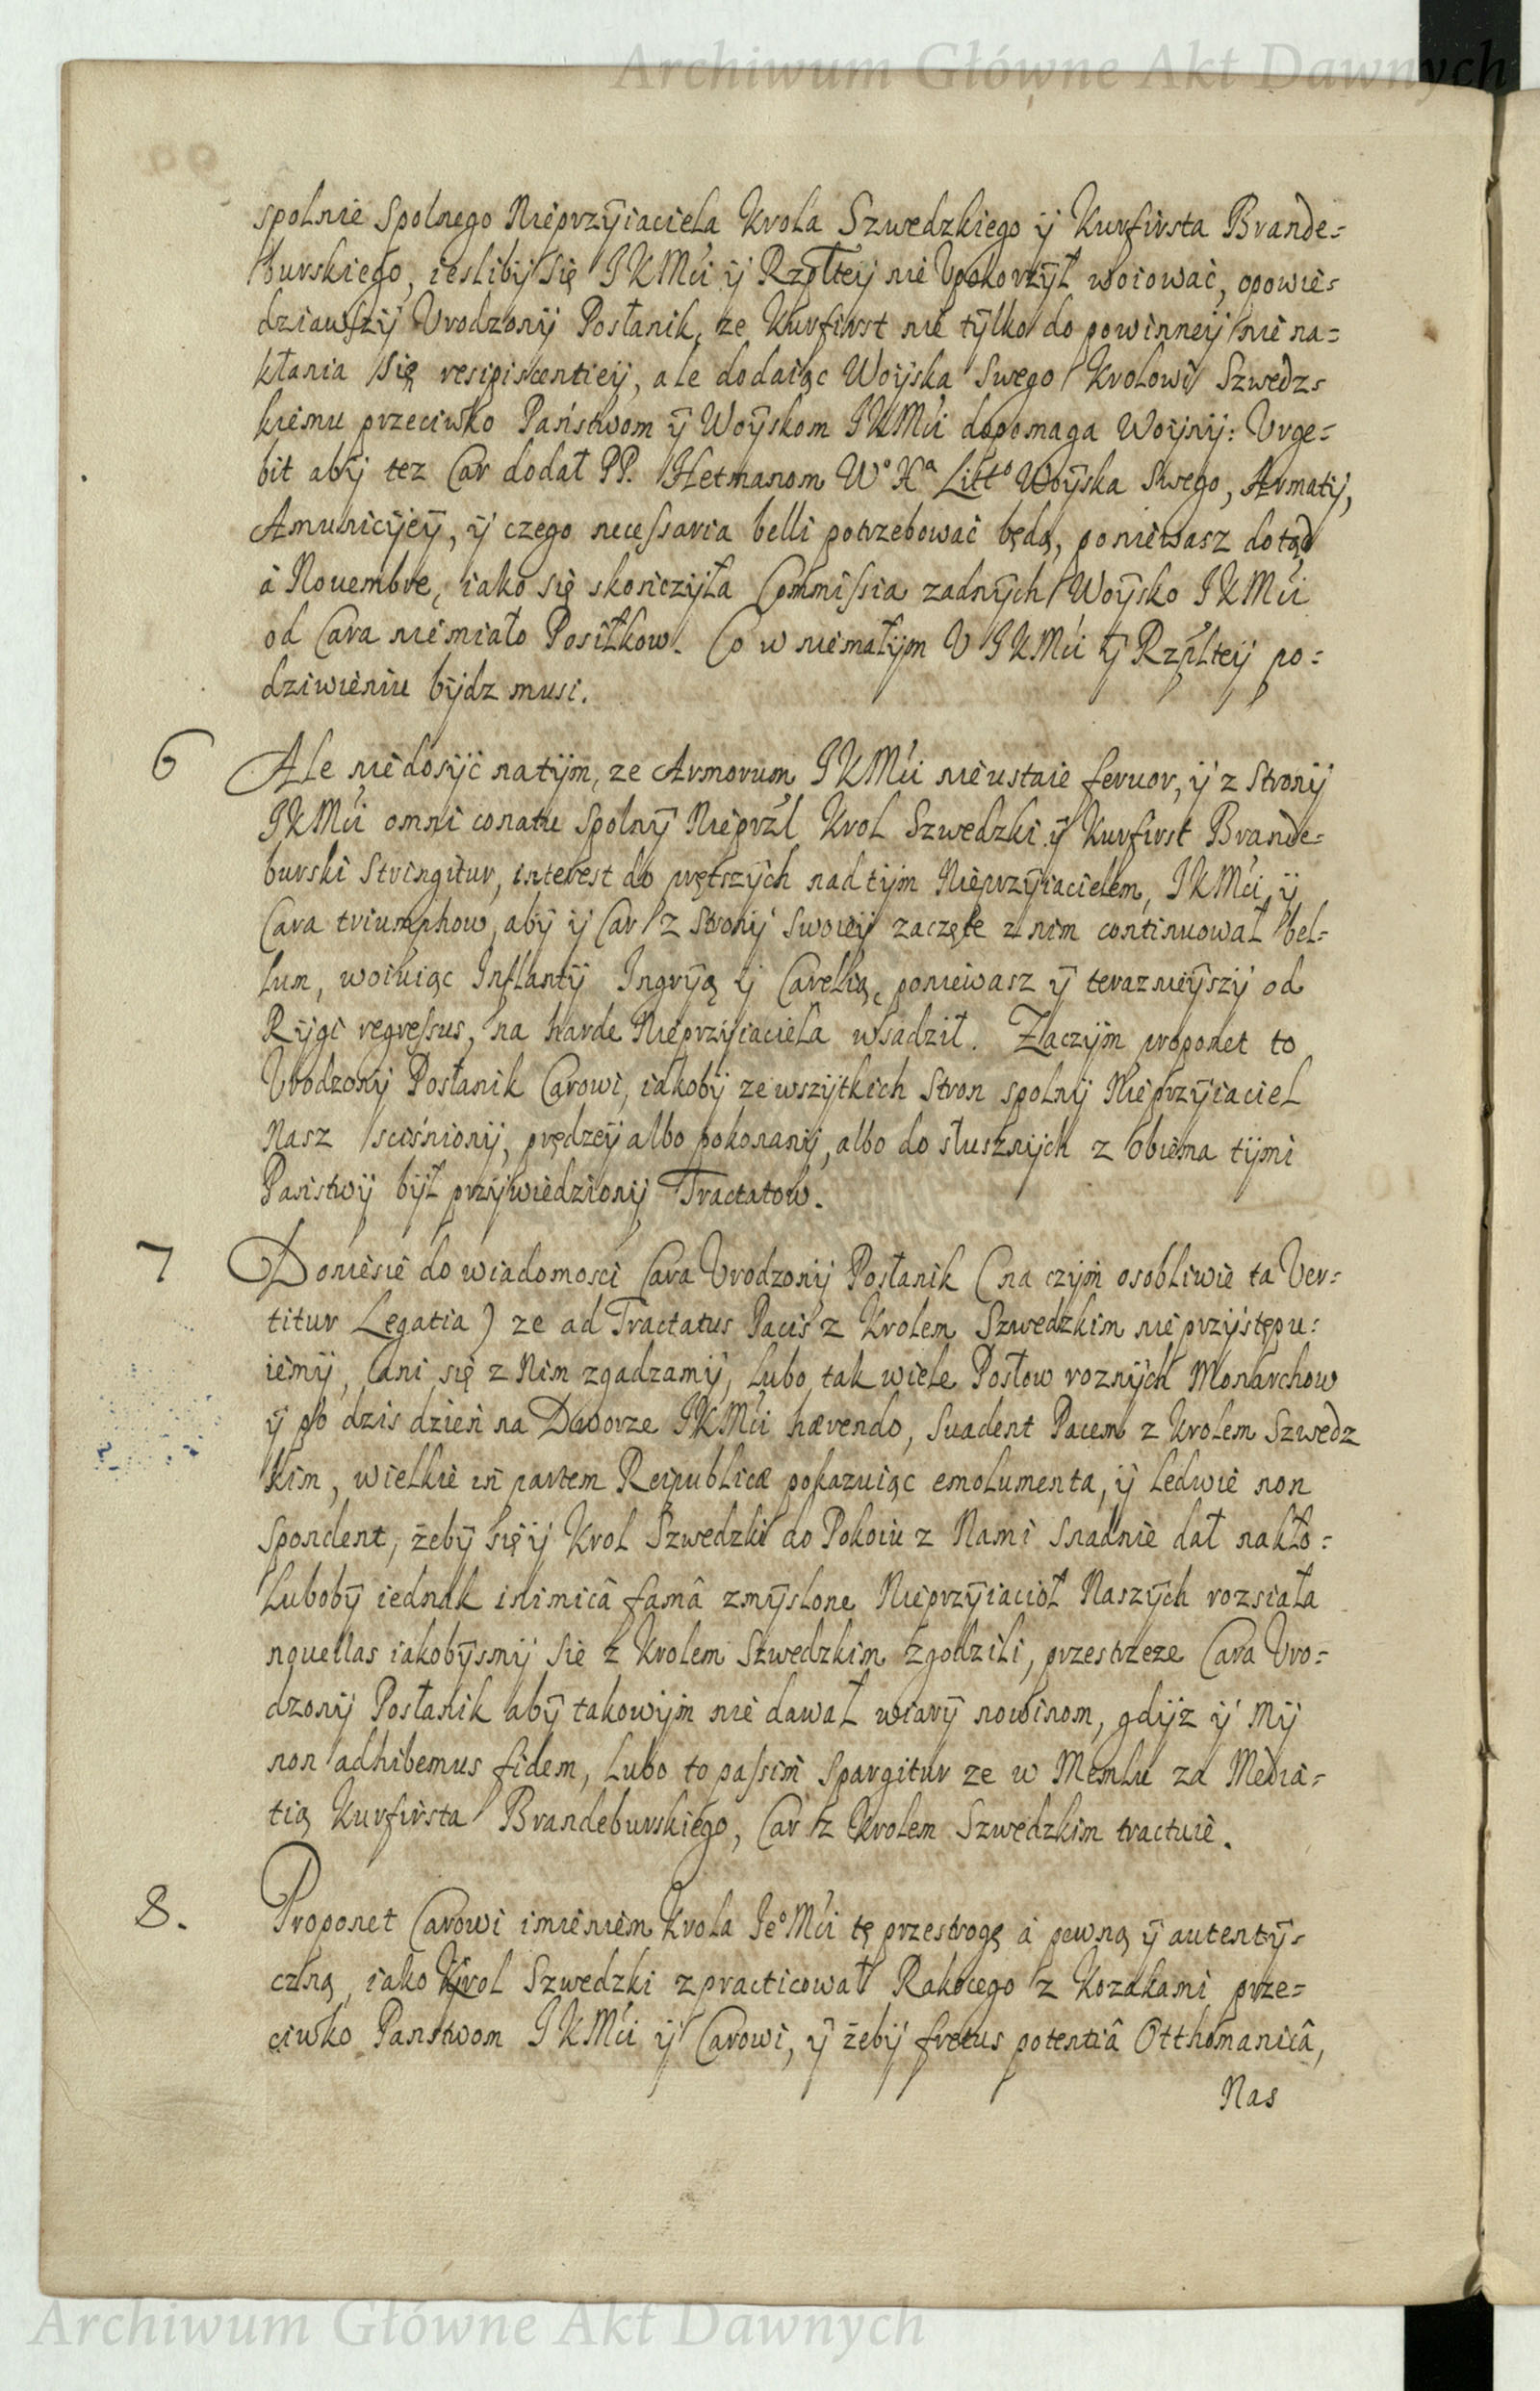 Archiwum Główne Akt Dawnych
spolnie Spolnego Nieprzÿiaciela Krola Szwedzkiego ÿ Kurfirsta Brande=
burskiego, iesliby się JKMći ÿ Rzpltey nie Vpokorzÿł woiować, opowie=
dziawszÿ Vrodzony Posłanik, ze Kurfirst nie tÿlko do powinneÿ nie na=
kłania się resipiscentieÿ, ale dodaiąc Woÿska Swego Krolowi Szwedz=
kiemu przeciwko Państwom ÿ Woÿskom JKMći dopomaga Woÿnÿ: Vrge=
bit abÿ tez Car dodał PP. Hetmanom Wº Xª Littº Woÿska Swego, Armatÿ,
Amunicÿeÿ, ÿ czego necessaria belli potrzebować będą, poniewasz dotąd
à Nouembre, iako się skończÿła Commissia zadnÿch Woÿsko JKMći
od Cara nie miało Posiłkow. Co w niemałÿm V JKMći ÿ Rzplteÿ po=
dziwieniu bÿdz musi.
6 Ale niedosÿć natÿm, ze Armorum JKMći nieustaie feruor, ÿ z Stronÿ
JKMći omni conatu Spolnÿ Nieprzl Krol Szwedzki ÿ Kurfirst Brande=
burski Stringitur, interest do prętszÿch nad tÿm Nieprzÿiacielem, JKMći ÿ
Cara triumphow, abÿ ÿ Car z Stronÿ Swoieÿ zaczęte z nim continuował bel=
lum, woiuiąc Inflantÿ Ingrÿą ÿ Carellią, poniewasz ÿ teraznieÿszÿ od
Rÿgi regressus, na harde Nieprzÿiaciela wsadził. Zaczÿm proponet to
Vrodzonÿ Posłanik Carowi, iakobÿ ze wszÿtkich Stron spolnÿ Nieprzÿiaciel
Nasz sciśnionÿ, prędzeÿ albo pokonanÿ, albo do słusznÿch z obiema tÿmi
Państwÿ bÿł przÿwiedzionÿ Tractatow.
7 Doniesie do wiadomosci Cara Vrodzonÿ Posłanik (na czÿm osobliwie ta Ver=
titur Legatia) ze ad Tractatus Pacis z Krolem Szwedzkim nie przÿstępu=
iemÿ, ani się z Nim zgadzamÿ, lubo tak wiele Posłow roznÿch Monarchow
ÿ po dzis dzień na Dworze JKMći hærendo, Suadent Pacem z Krolem Szwedz
kim, wielkie in partem Reipublicæ pokazuiąc emolumenta, ÿ ledwie non
spondent, żebÿ się ÿ Krol Szwedzki do Pokoiu z Nami snadnie dał nakło=
Lubobÿ iednak inimicâ famâ zmÿslone Nieprzÿiacioł Naszÿch rozsiała
nouellas iakobÿsmÿ Sie z Krolem Szwedzkim zgodzili, przestrzeze Cara Vro=
dzonÿ Posłanik abÿ takowÿm nie dawał wiarÿ nowinom, gdÿz ÿ mÿ
non adhibemus fidem, Lubo to passim spargitur ze w Memlu za Media=
tią Kurfirsta Brandeburskiego, Car z Krolem Szwedzkim tractuie.
8. Proponet Carowi imieniem Krola JeºMći tę przestrogę à pewną ÿ autentÿ=
czną, iako Krol Szwedzki zpracticował Rakocego z Kozakami prze=
ciwko Panstwom JKMći ÿ Carowi, ÿ żebÿ fretus potentiâ Otthomanicâ,
Nas
Archiwum Główne Akt Dawnych